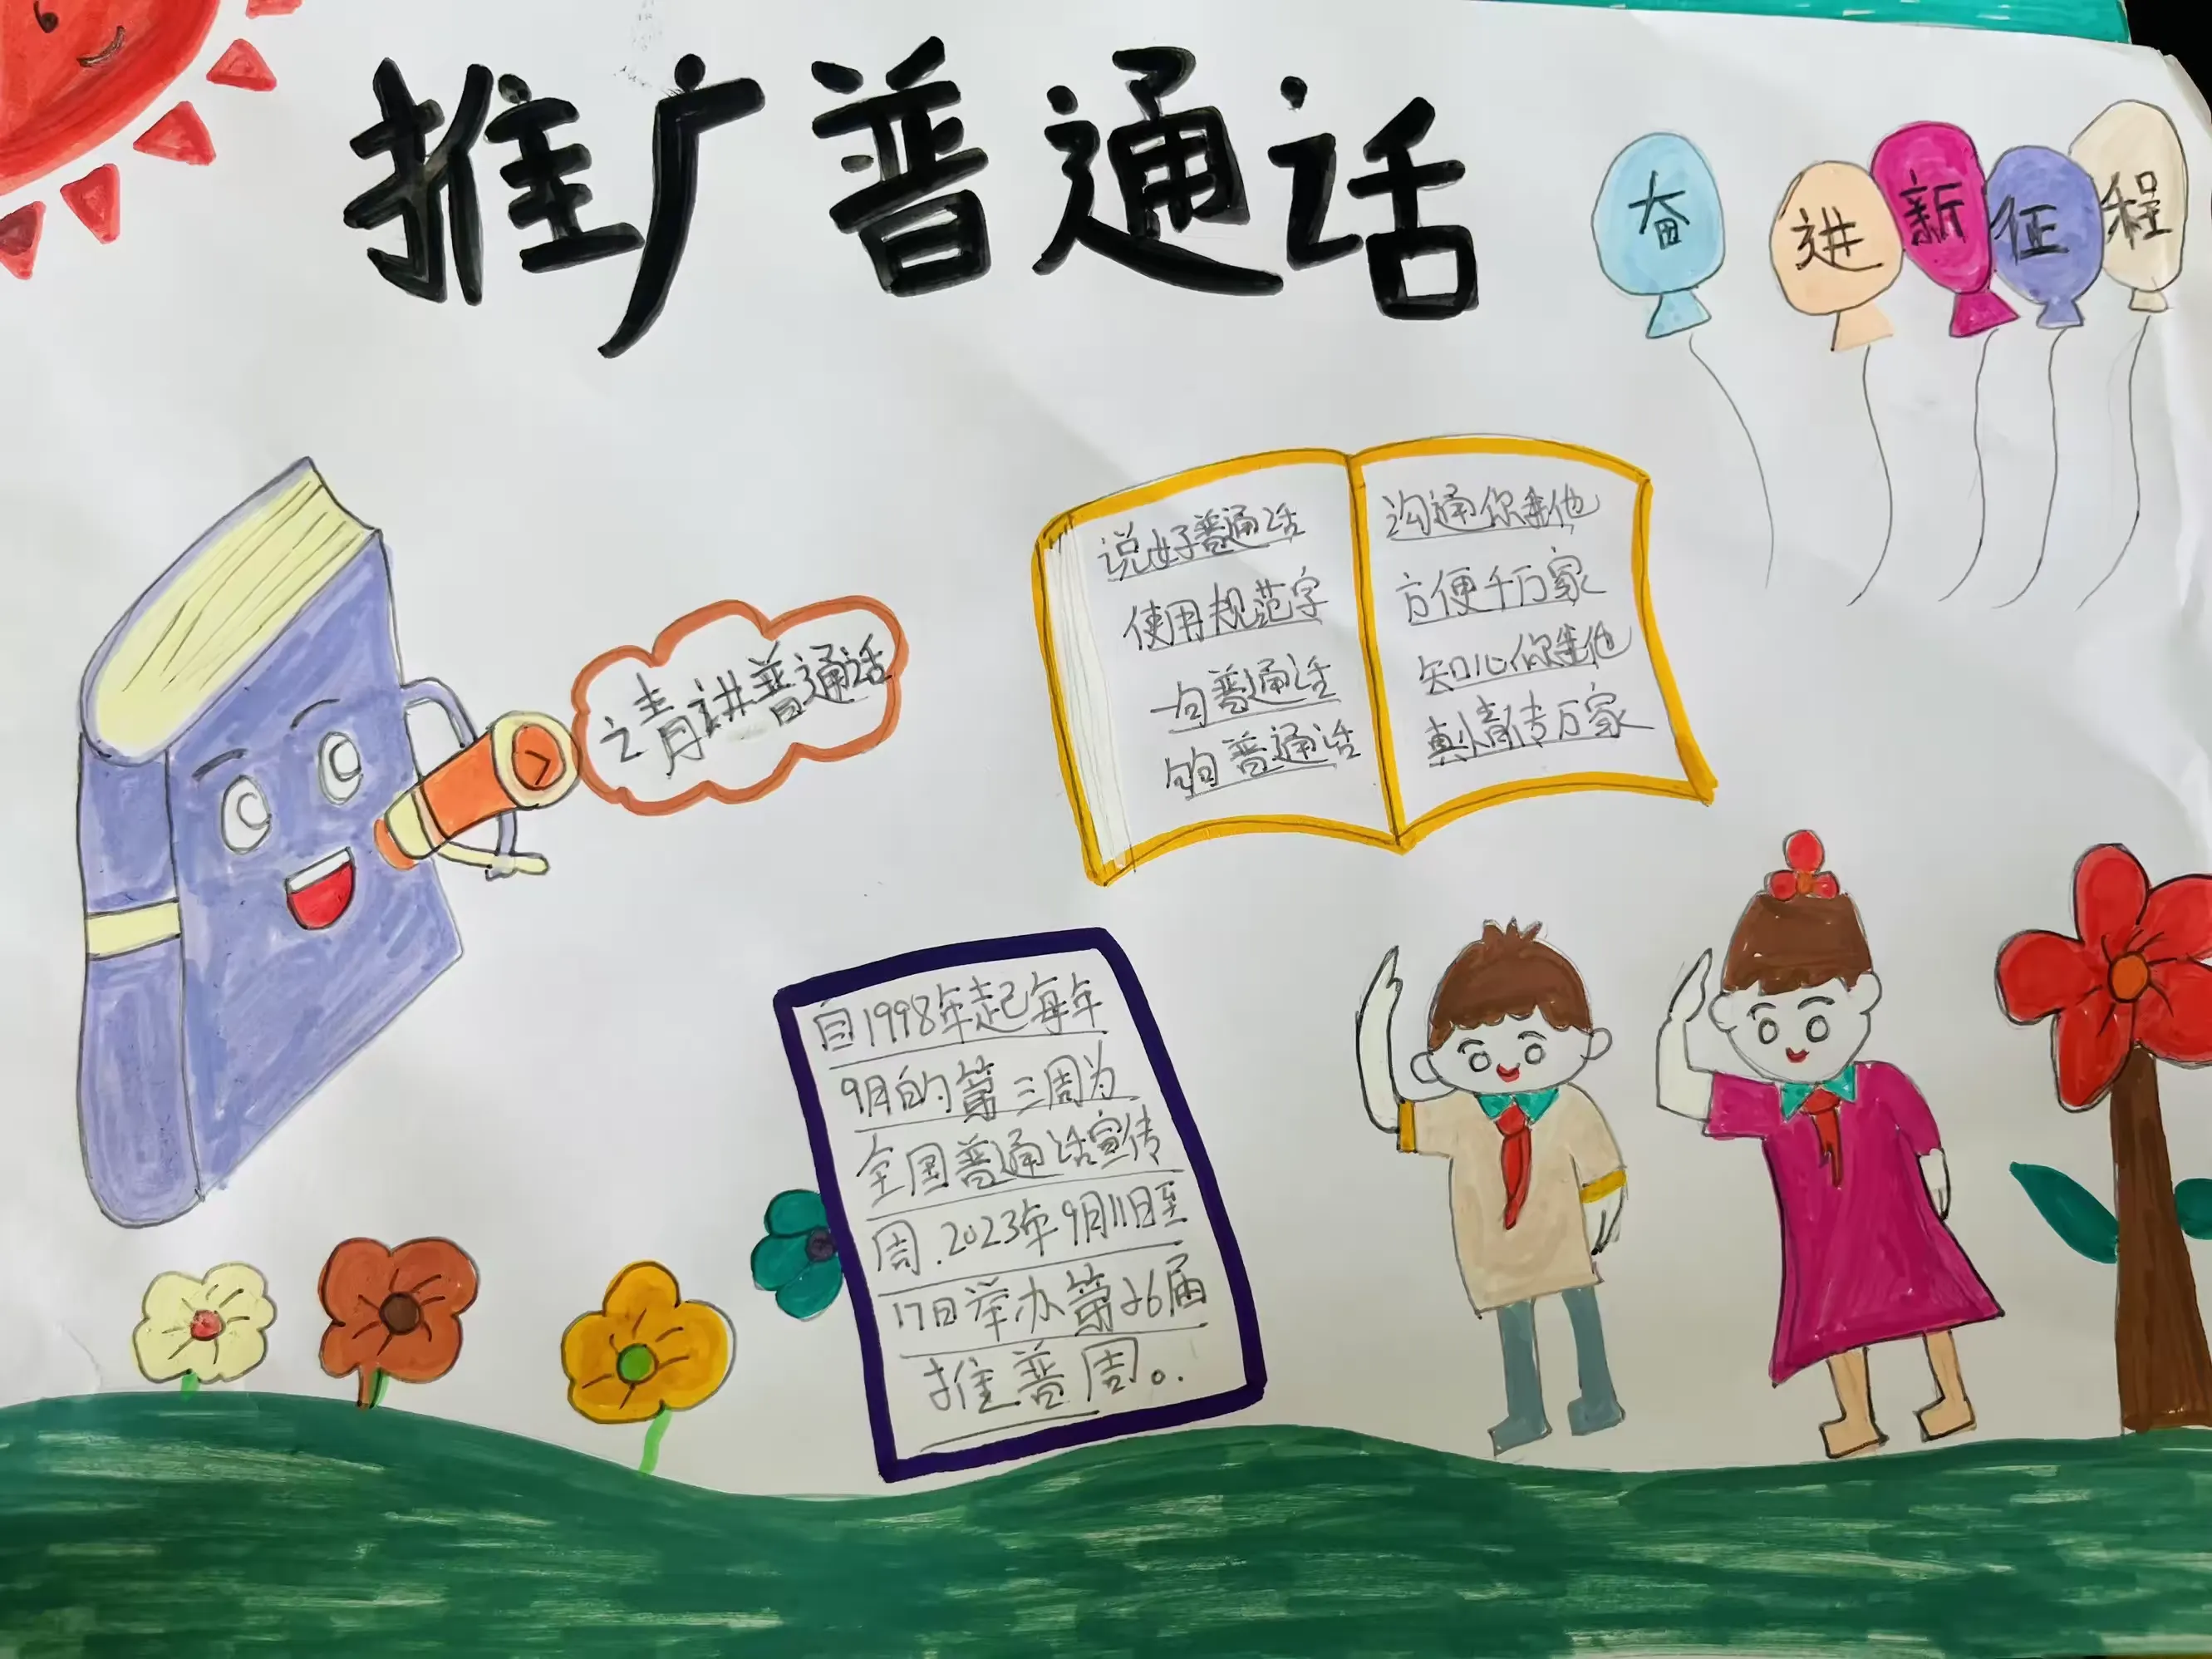 推广普通话
奋进新征程
请讲普通话
说好普通话
使用规范字
一句普通话
句句普通话
沟通你我他
方便千万家
知心你我他
真情传万家
自1998年起每年
9月的第三周为
全国普通话宣传
周.2023年9月11日至
17日举办第26届
推普周。.